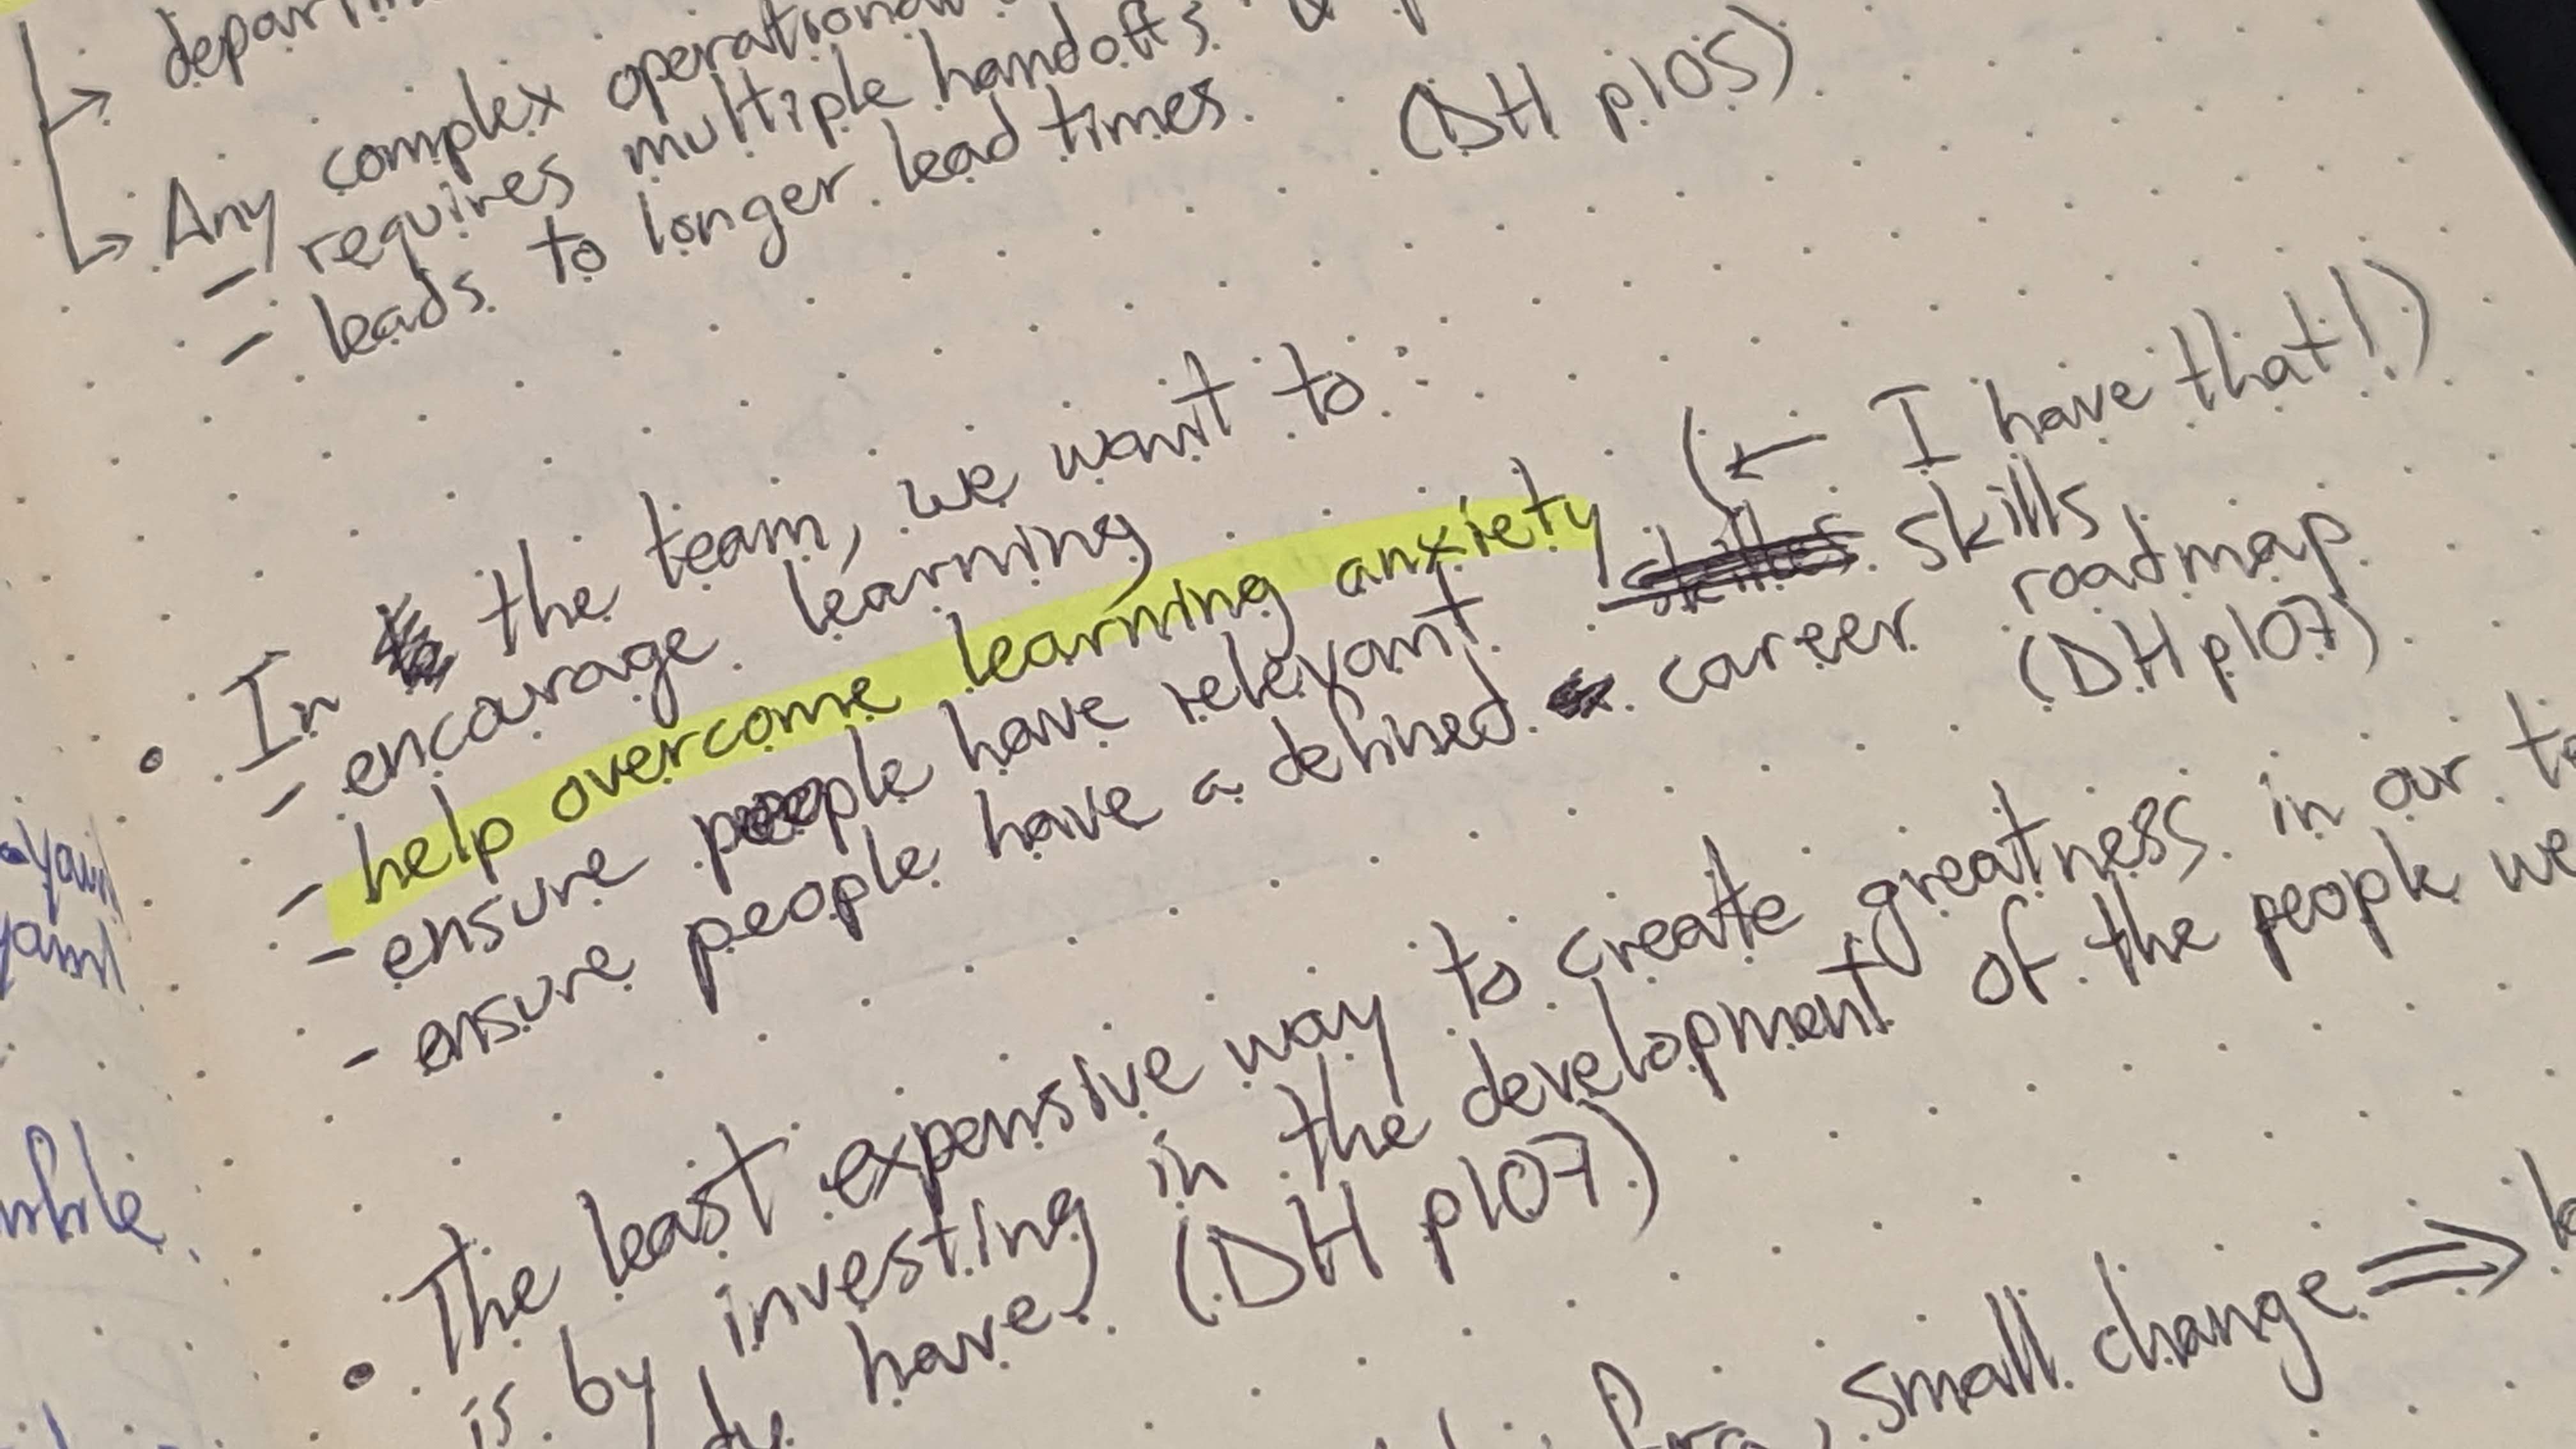 Any complex operational
- requires multiple handoffs &
- leads to longer lead times. (DH p105)
• In the team, we want to:
- encourage learning
- help overcome learning anxiety (← I have that!)
- ensure people have relevant skills
- ensure people have a defined career roadmap
(DH p107)
• The least expensive way to create greatness in our
is by investing in the development of the people we
have. (DH p107)
small change ⇒
yaml